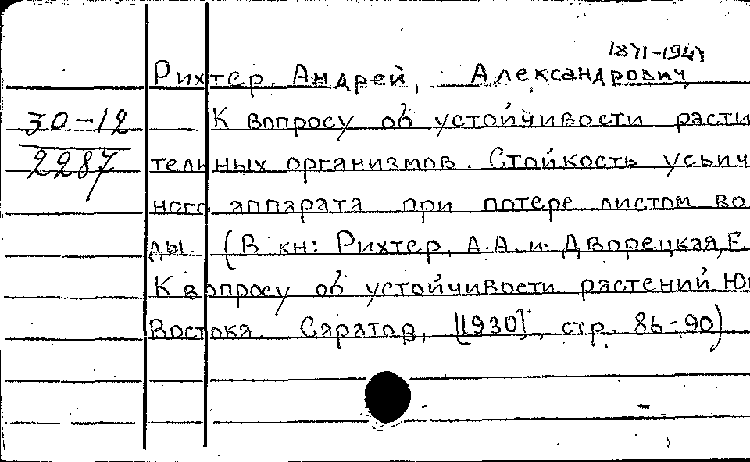 1871-1947
Рихтер, Андрей, Александрович
30-12
2287
К вопросу об устойчивости расти
тельных организмов. Стойкость усьич
ного аппарата при потере листом во
ды. (В кн: Рихтер, А.А. и. Дворецкая, Е
К вопросу об устойчивости растений Ю
Востока. Саратов, [1930], стр. 86-90)